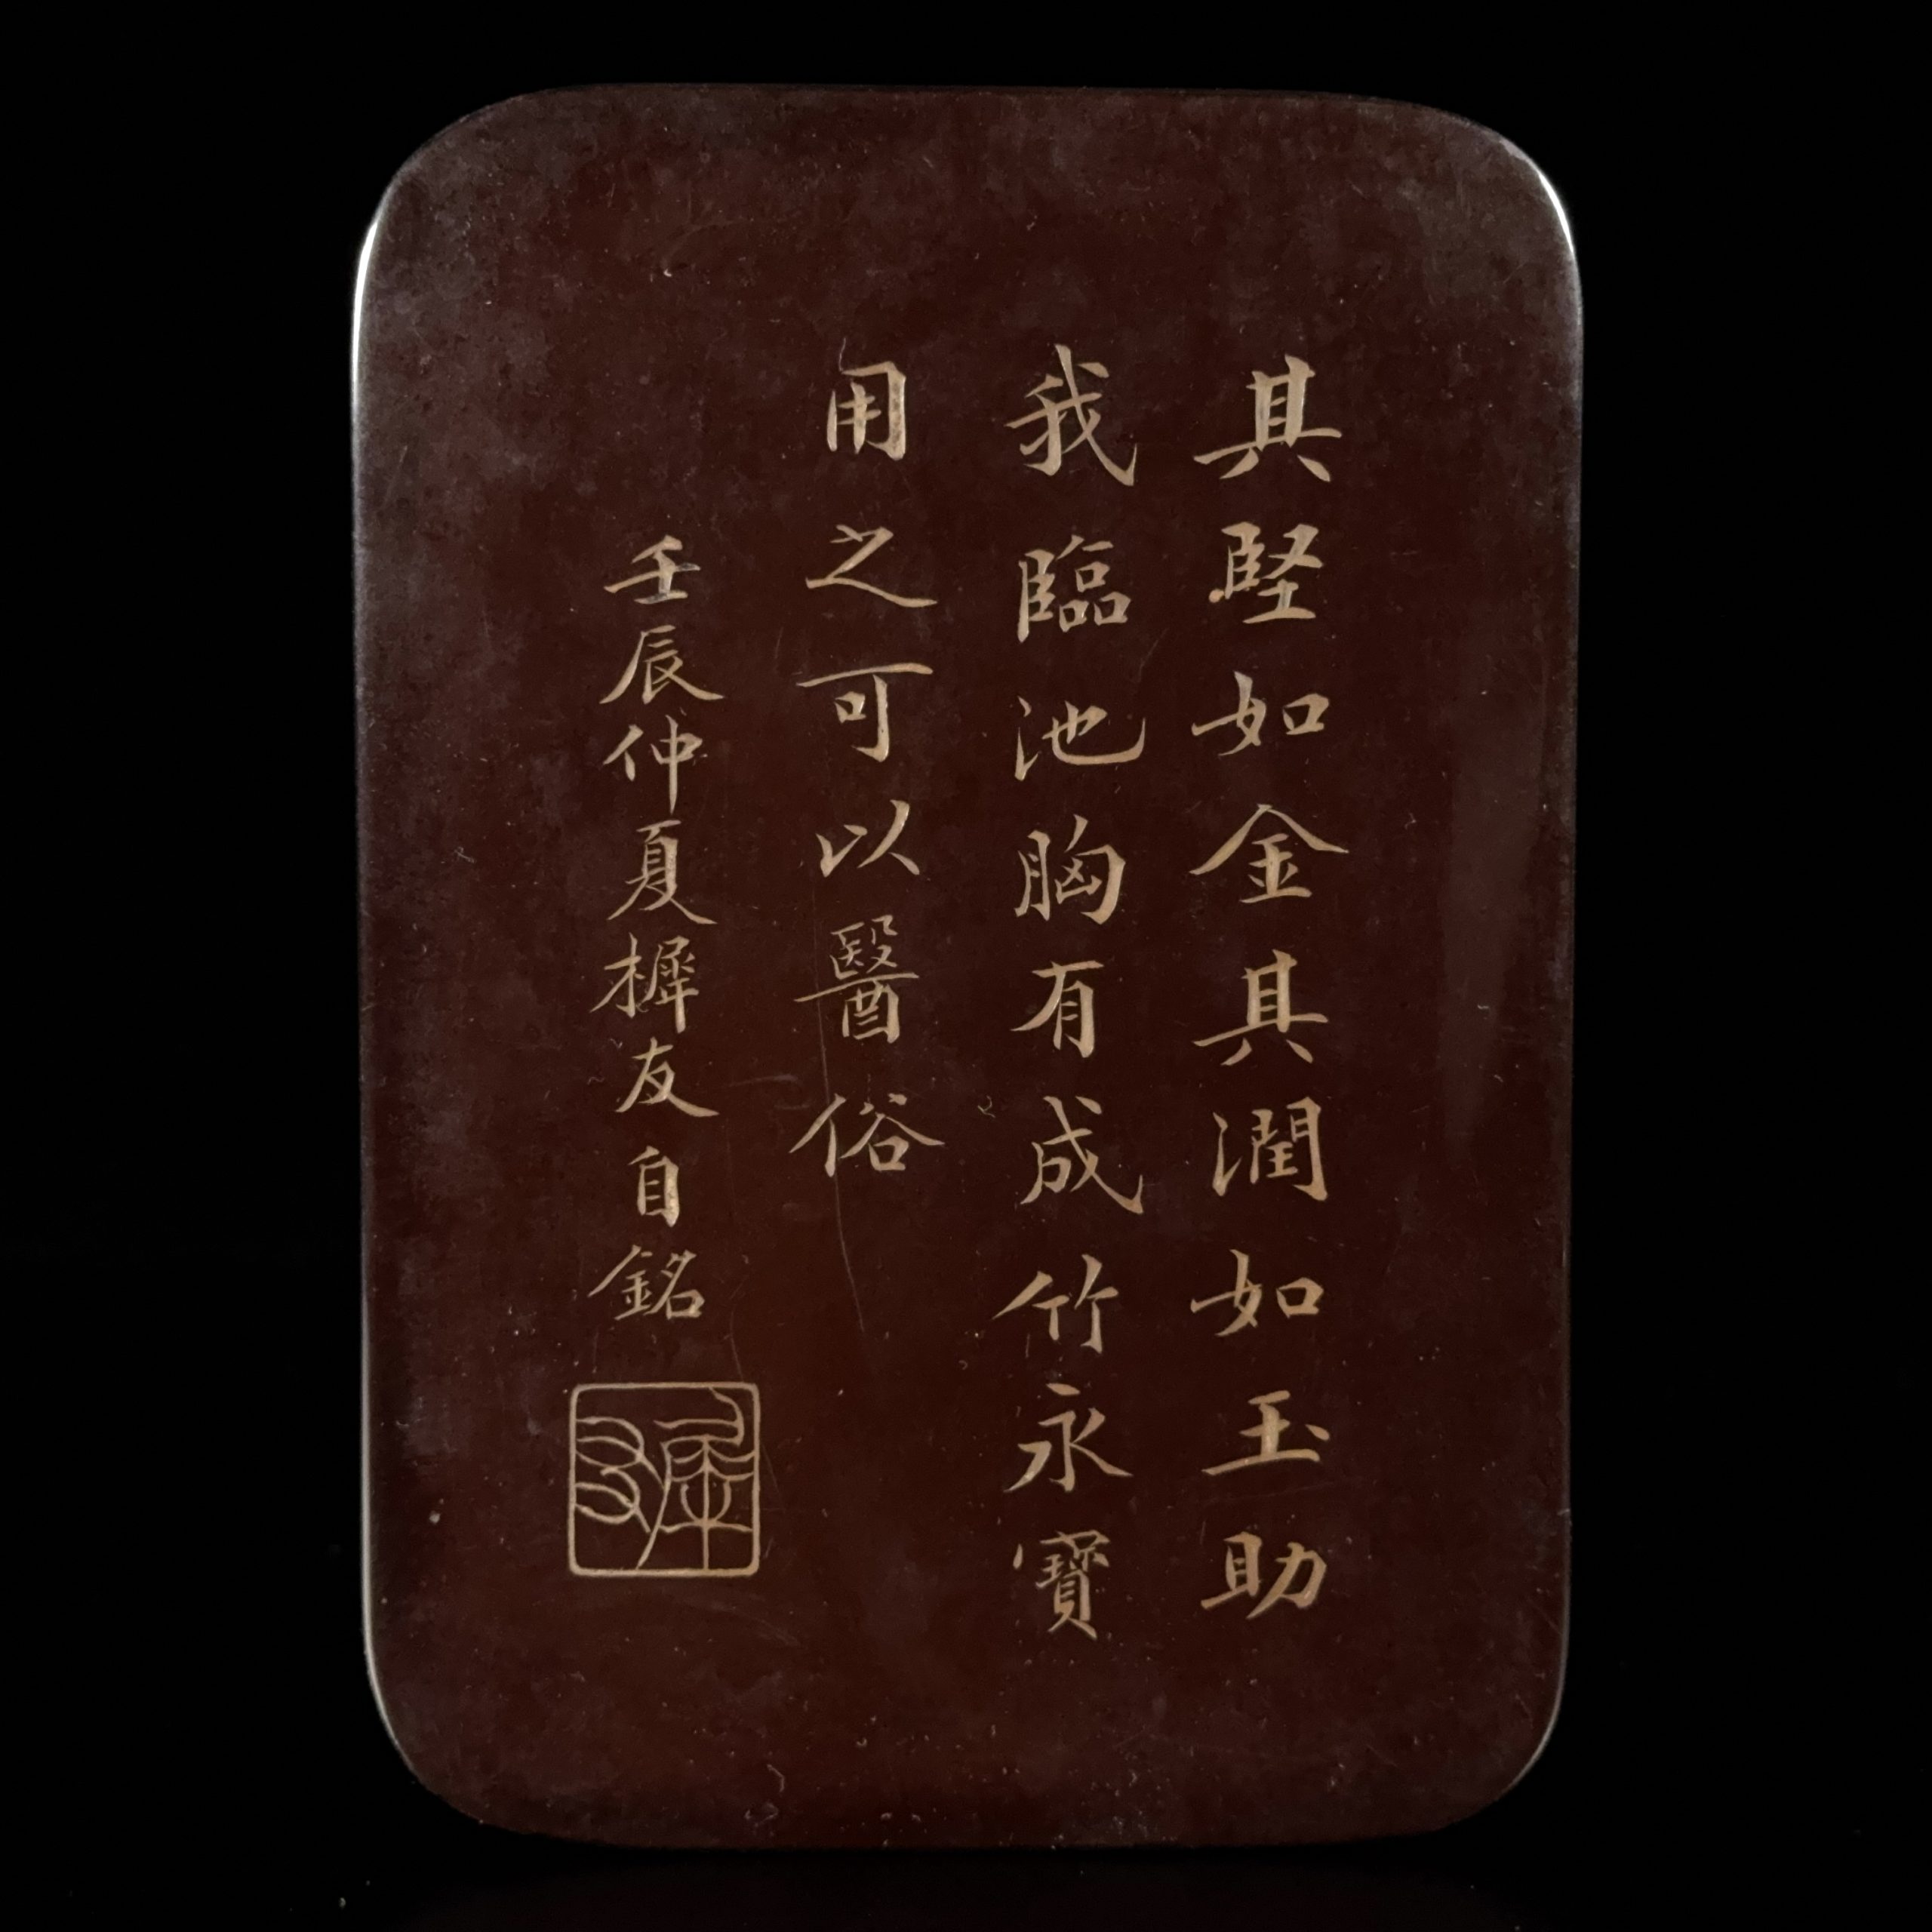 其堅如金其潤如玉助
我臨池胸有成竹永寶
用之可以醫俗
壬辰仲夏樨友自銘